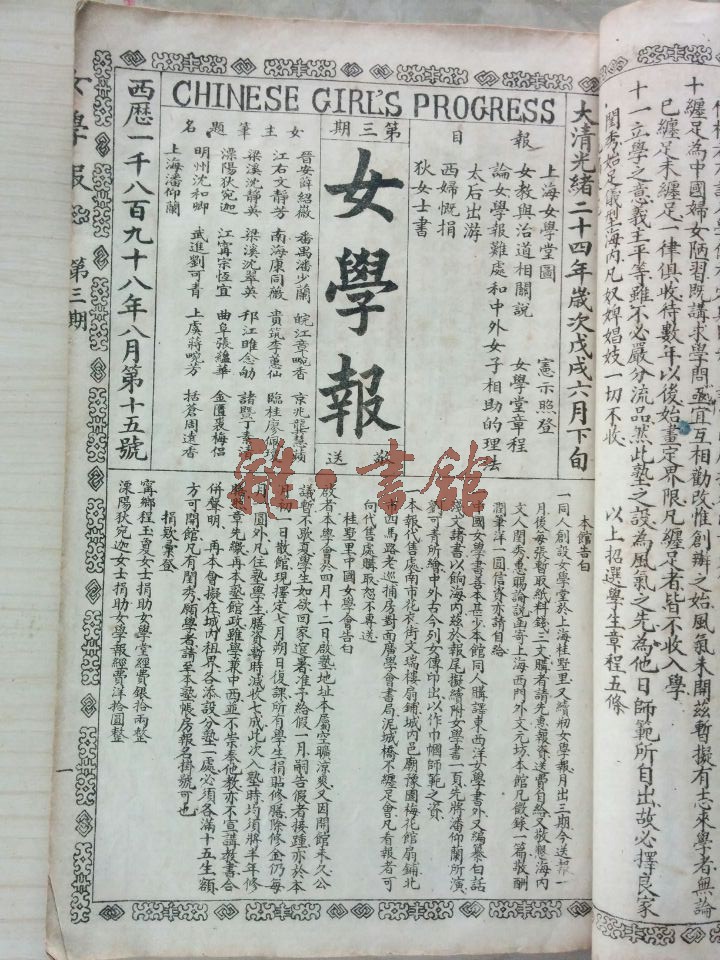 十 纏足為中國婦女陋習既講求學問亟宜互相勸改惟創辦之始風氣未開茲暫擬有志來學者無論
已纏足未纏足一律俱收待數年以後始畫定界限凡纏足者皆不收入學
十一 立學之意義主平等雖不必嚴分流品然此塾之設為風氣之先為他日師範所自出故必擇良家
閨秀始足儀型海內凡奴婢娼妓一切不收
以上招選學生章程五條
CHINESE GIRL'S PROGRESS
大清光緒二十四年歲次戊戌六月下旬
報目
上海女學堂圖
憲示照登
女教與治道相關說
女學堂章程
論女學報難處和中外女子相助的理法
太后出游
西婦慨捐
狄女士書
第三期
女學報
敬送
女主筆題名
晉安薛紹徽
番禺潘少蘭
皖江章畹香
京兆龔慧蘋
江右文靜芳
南海康同薇
貴筑李蕙仙
臨桂廖佩瓊
梁溪沈靜英
梁溪沈翠英
邗江睢念劬
諸暨丁素清
溧陽狄宛迦
江寗宗恆宜
曲阜張蘊華
金匱裘梅侶
明州沈和卿
武進劉可青
上虞蔣畹芳
括蒼周遠香
上海潘仰蘭
西歷一千八百九十八年八月第十五號
本館告白
一同人創設女學堂於上海桂墅里又續朔女學報月出三期今送報一
月後每張暫取紙料錢三文購者請先惠報資送費自給又敬懇海內
文人閨秀惠賜論說函寄上海西門外文元坊本館凡登錄一篇敬酬
潤筆洋一圓信資亦請自給
中國女學書善本甚少本館同人購譯東西洋女學書外又編纂白話
淺文諸書以餉海內茲於報尾擬續附女學書一頁先將潘仰蘭所演
劉可青所繪中外古今列女傳印出以作巾幗師範之資
一本報代售處南市花衣街文瑞樓扇鋪城內邑廟豫園梅花館扇鋪北
市四馬路老巡捕房對面廣學會書局泥城橋不纏足會凡看報者可
向代售處購取恕不專送
桂墅里中國女學會告白
啟者本學會於四月十二日啟塾地址本屬空曠涼爽又因開館未久公
議暫不歇夏學生如欲回家避暑准予給假一月嗣告假者接踵亦於本
月初一日散館現擇定七月朔日復課所有學生捐貼修膳除修金仍每
月圓外凡住塾學生膳資暫時減收七成此次入塾時均須將半年修
膳照章先繳再本塾館政雖學兼中西並不崇奉他教亦不宣講教書合
併聲明 再本會擬在城內租界各添設分塾一處必須各滿十五生額
方可開館凡有閨秀願學者請至本塾帳房報名掛號可也
捐欵彙登
寗鄉程玉夏女士捐助女學堂經費銀拾兩整
溧陽狄宛迦女士捐助女學報經費洋拾圓整
女學報
第三期
一
雅·書館